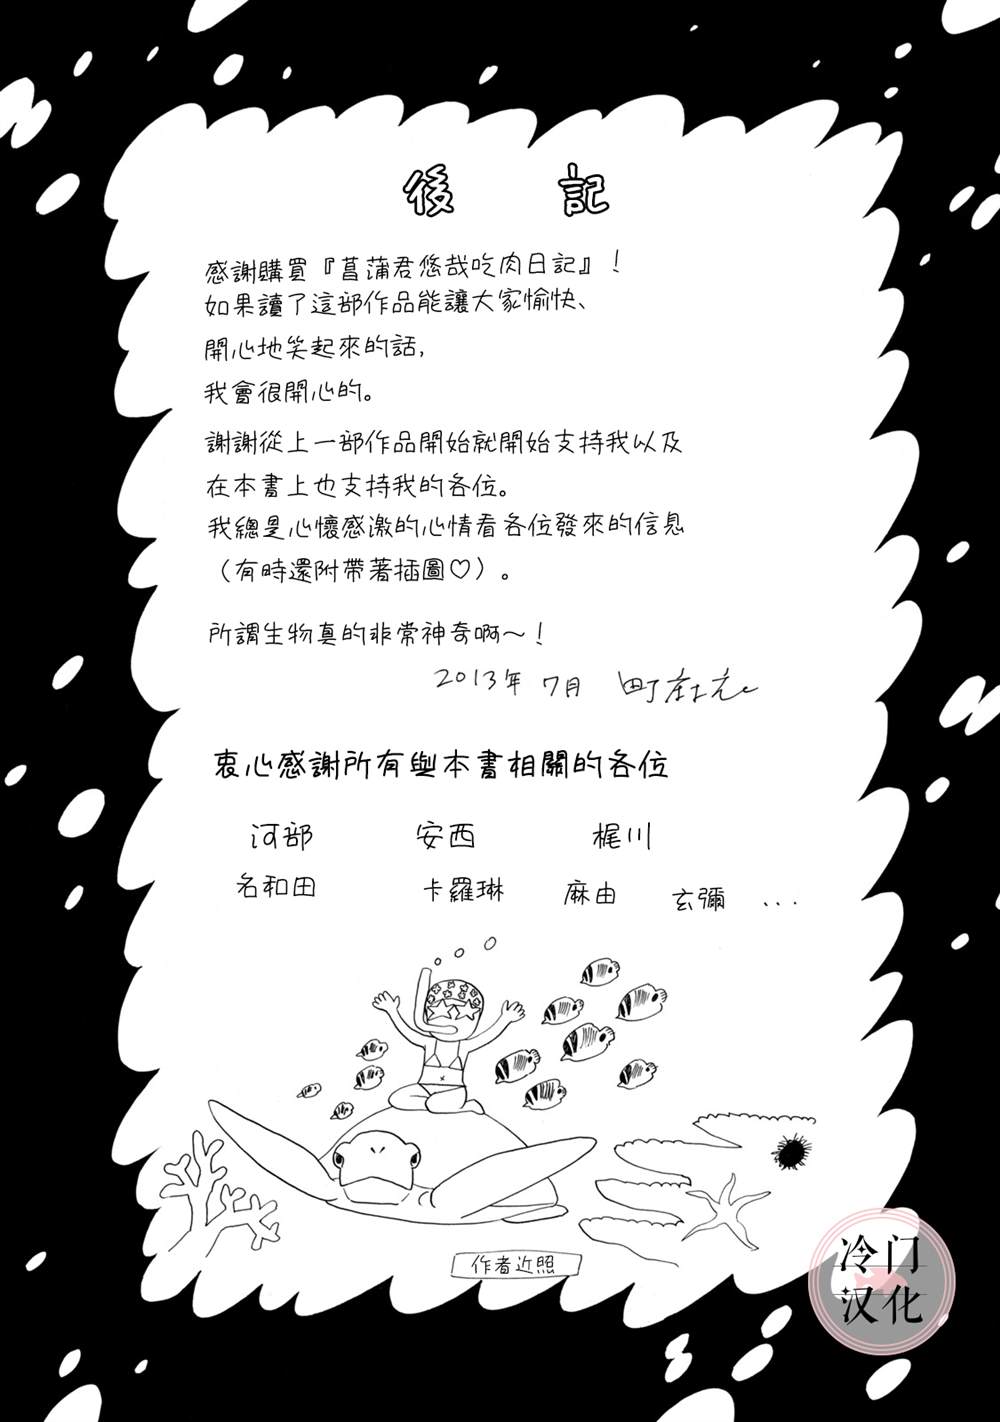 後記
感謝購買『菖蒲君悠哉吃肉日記』！
如果讀了這部作品能讓大家愉快、
開心地笑起來的話，
我會很開心的。
謝謝從上一部作品開始就開始支持我以及
在本書上也支持我的各位。
我總是心懷感激的心情看各位發來的信息
（有時還附帶著插圖♡）。
所謂生物真的非常神奇啊～！
2013年 7月
衷心感謝所有與本書相關的各位
河部 安西 梶川
名和田 卡羅琳 麻由 玄彌 ...
作者近照
冷门
汉化